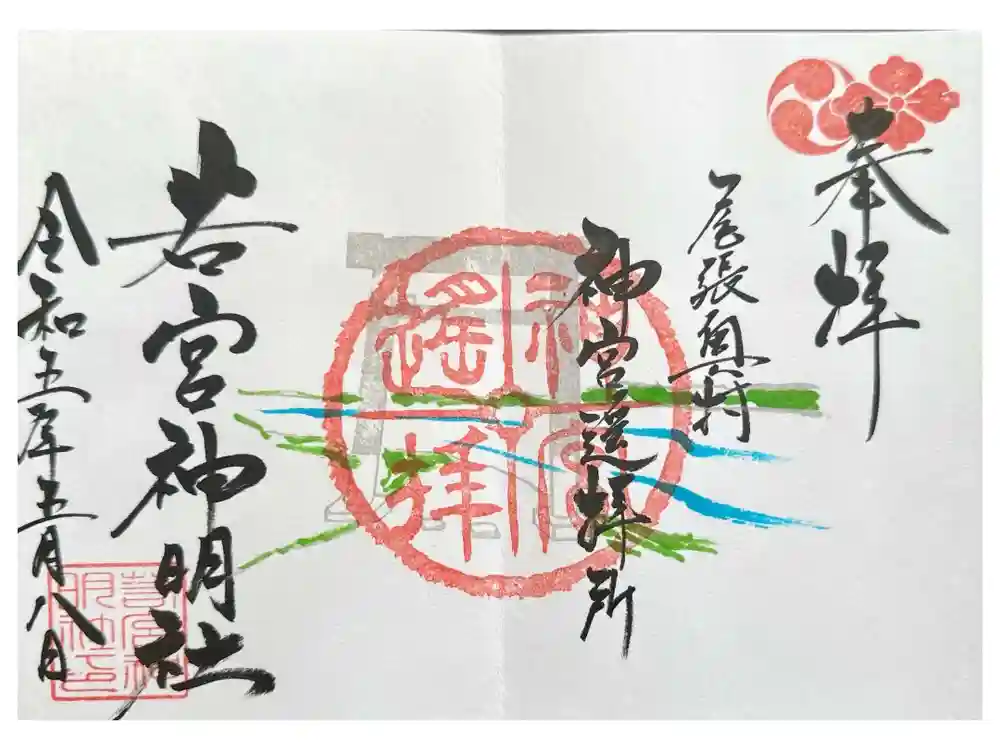 奉拝
尾張奥村
神宮遥拝所
若宮神明社
令和五年五月八日
神宮遥拝
若宮神明社印